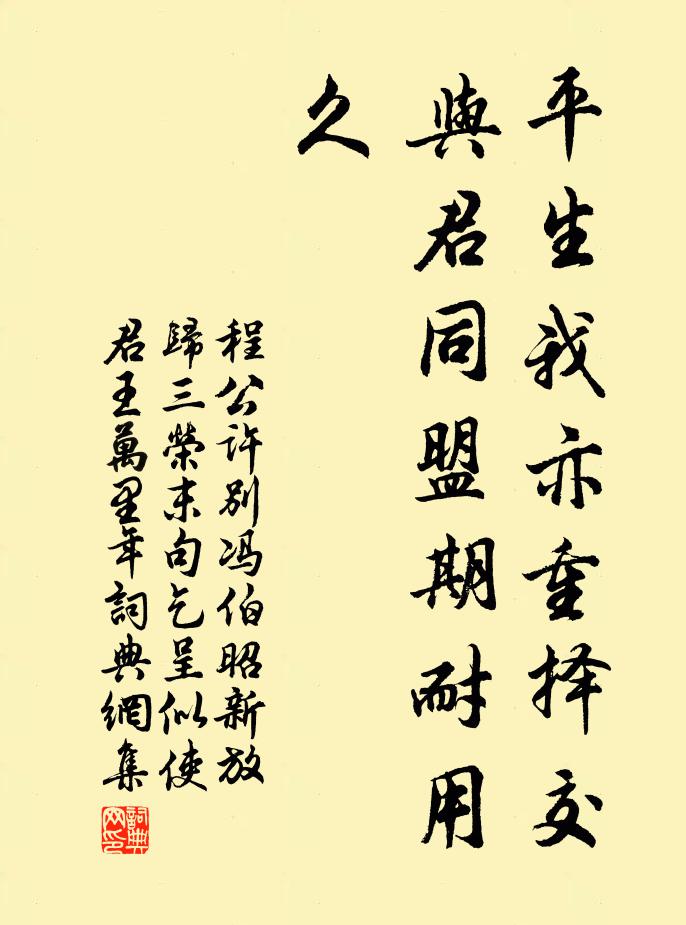 平生我亦重择交
與君同盟期耐用
久
程公许别冯伯昭新放
歸三榮末句乞呈似使
君王萬里年詞典網集
詞典网印